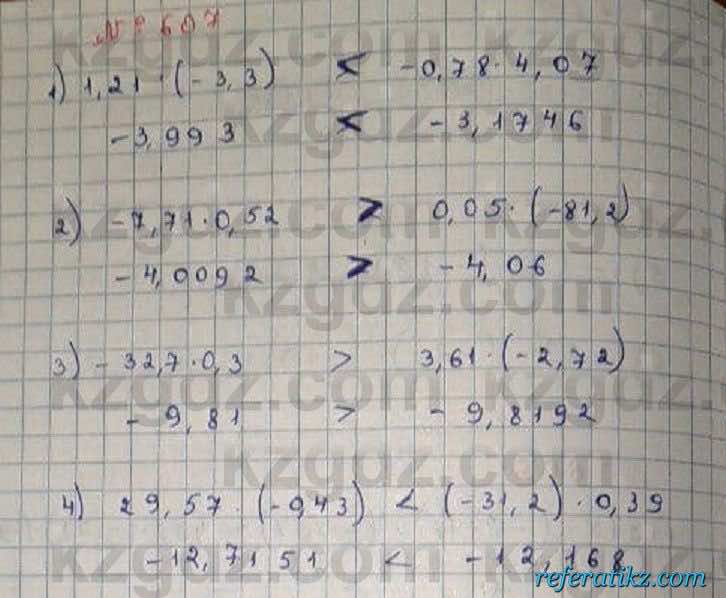 № 607
1) 1,21 · (-3,3) < -0,78 · 4,07
-3,993 < -3,1746
2) -7,71 · 0,52 > 0,05 · (-81,2)
-4,0092 > -4,06
3) -32,7 · 0,3 > 3,61 · (-2,72)
-9,81 > -9,8192
4) 29,57 · (-0,43) < (-31,2) · 0,39
-12,7151 < -12,168
kzgdz.com
referatikz.com